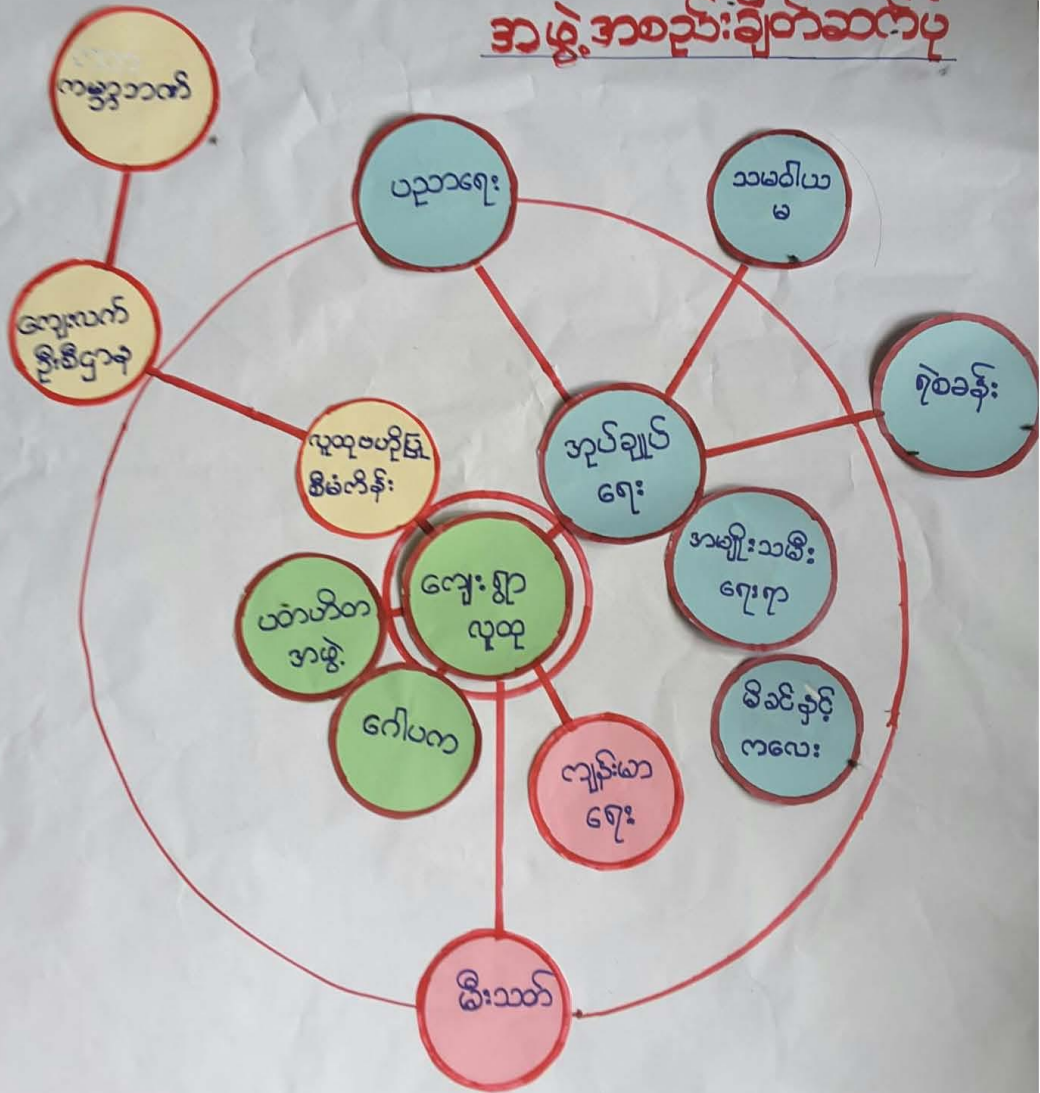 အဖွဲ့အစည်းချိတ်ဆက်ပုံ
ကမ္ဘာ့ဘဏ်
ပညာရေး
သမဝါယ
မ
ကျေးလက်
ဦးစီဌာန
ရဲစခန်း
လူထုဗဟိုပြု
စီမံကိန်း
အုပ်ချုပ်
ရေး
အမျိုးသမီး
ရေးရာ
ကျေးရွာ
လူထု
ပတံဟိတ
အဖွဲ့
ဂေါပက
မိခင်နှင့်
ကလေး
ကျန်းမာ
ရေး
မီးသတ်